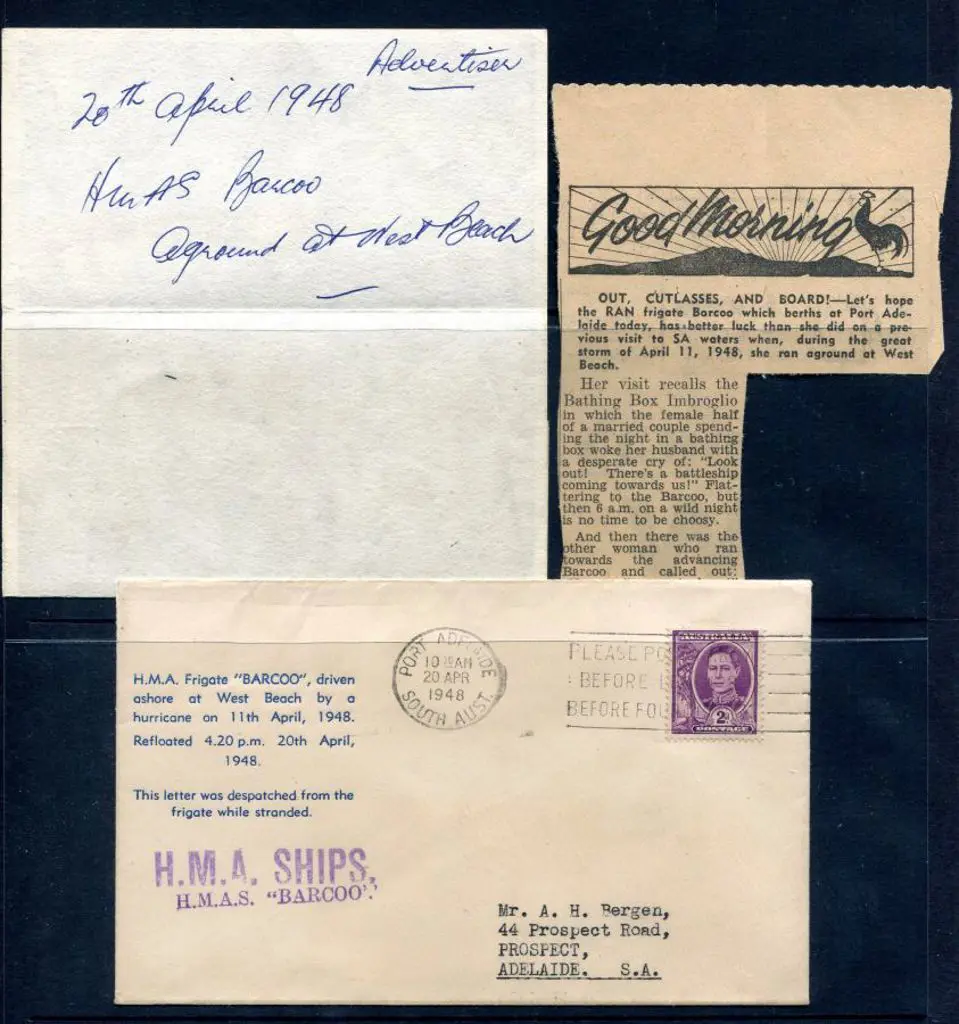 Advertiser
20th April 1948
HMAS Barcoo
aground at West Beach
Good Morning
OUT, CUTLASSES, AND BOARD!—Let's hope
the RAN frigate Barcoo which berths at Port Ade-
laide today, has better luck than she did on a pre-
vious visit to SA waters when, during the great
storm of April 11, 1948, she ran aground at West
Beach.
Her visit recalls the
Bathing Box Imbroglio
in which the female half
of a married couple spend-
ing the night in a bathing
box woke her husband with
a desperate cry of: "Look
out! There's a battleship
coming towards us!" Flat-
tering to the Barcoo, but
then 6 a.m. on a wild night
is no time to be choosy.
And then there was the
other woman who ran
towards the advancing
Barcoo and called out:
H.M.A. Frigate "BARCOO", driven
ashore at West Beach by a
hurricane on 11th April, 1948.
Refloated 4.20 p.m. 20th April,
1948.
This letter was despatched from the
frigate while stranded.
H.M.A. SHIPS,
H.M.A.S. "BARCOO".
PORT ADELAIDE
10 AM
20 APR
1948
SOUTH AUST
PLEASE PO
BEFORE
BEFORE FOU
AUSTRALIA
2D
POSTAGE
Mr. A. H. Bergen,
44 Prospect Road,
PROSPECT,
ADELAIDE. S.A.